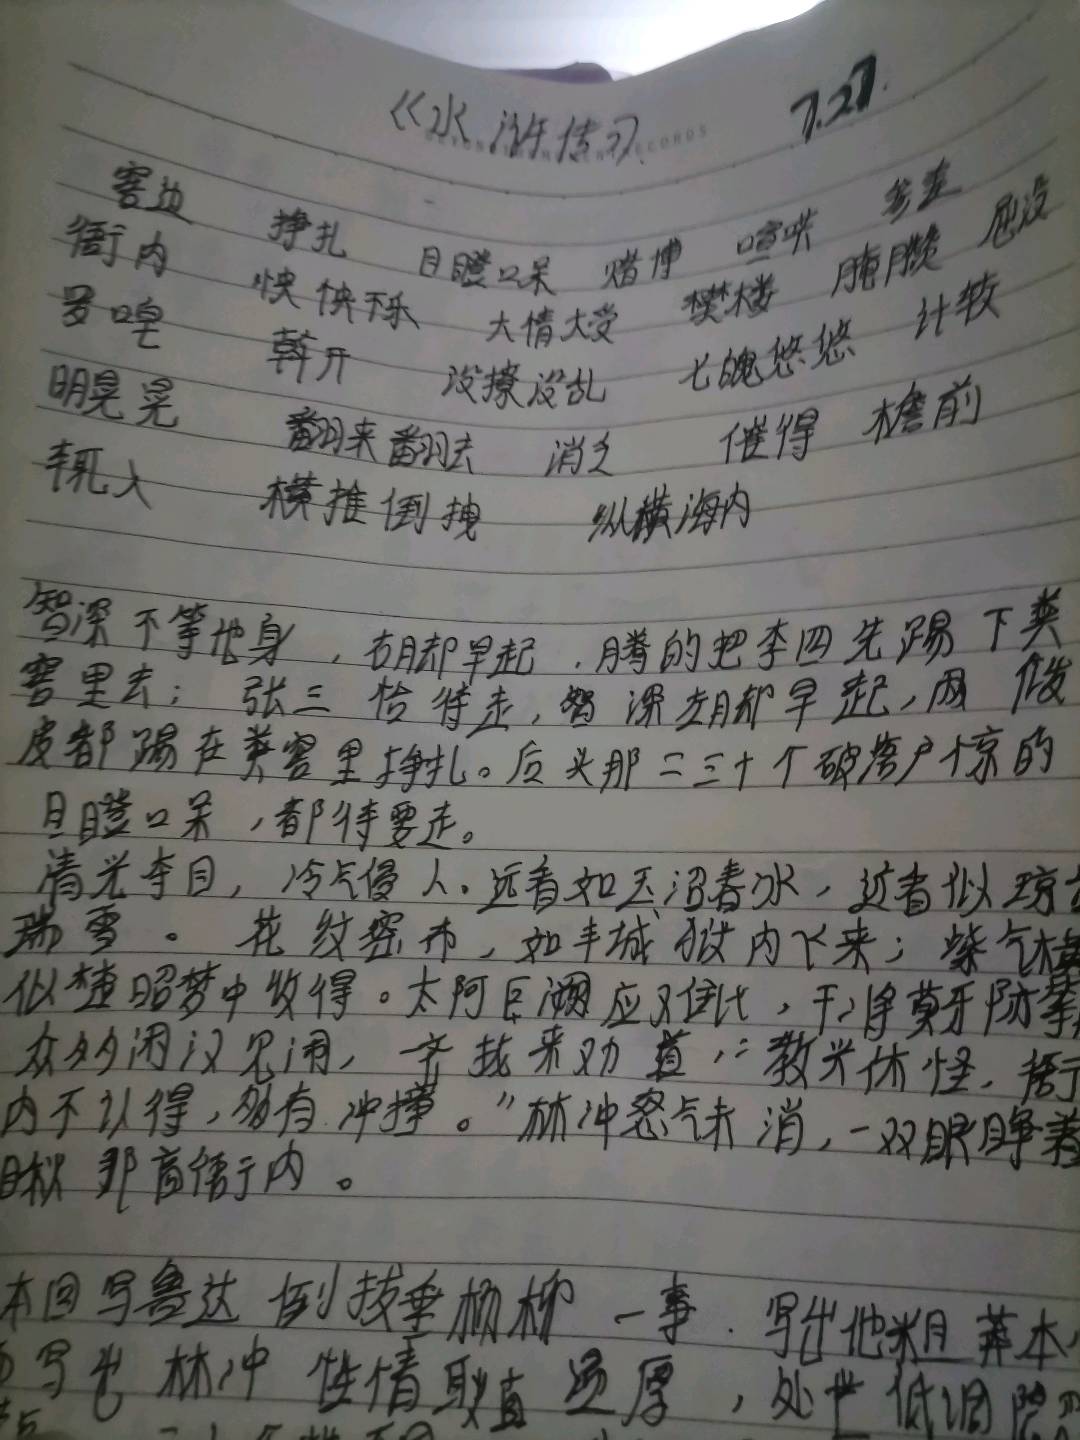 《水浒传》 7.27.
窖边 挣扎 目瞪口呆 赌博 喧哄 参差
衙内 怏怏不乐 大情大受 樊楼 腌臜 屈没
罗唣 斡开 没撩没乱 七魄悠悠 计较
明晃晃 翻来翻去 消乏 催得 檐前
入 横推倒拽 纵横海内
智深不等他身,右脚早起,腾的把李四先踢下粪
窖里去;张三恰待走,智深左脚早起,两个泼
皮都踢在粪窖里挣扎。后头那二三十个破落户惊的
目瞪口呆,都待要走。
清光夺目,冷气侵人。远看如玉沼春水,近看似琼
瑞雪。花纹密布,如丰城狱内飞来;紫气横
似楚昭梦中收得。太阿巨阙应难比,干将莫牙
众多闲汉见闹,一齐拢来劝道:“教头休怪,衙
内不认得,多有冲撞。”林冲怒气未消,一双眼睁着
瞅那高衙内。
本回写鲁达倒拔垂杨柳一事.写出他粗莽本
写出林冲性情耿直 厚,处世低调